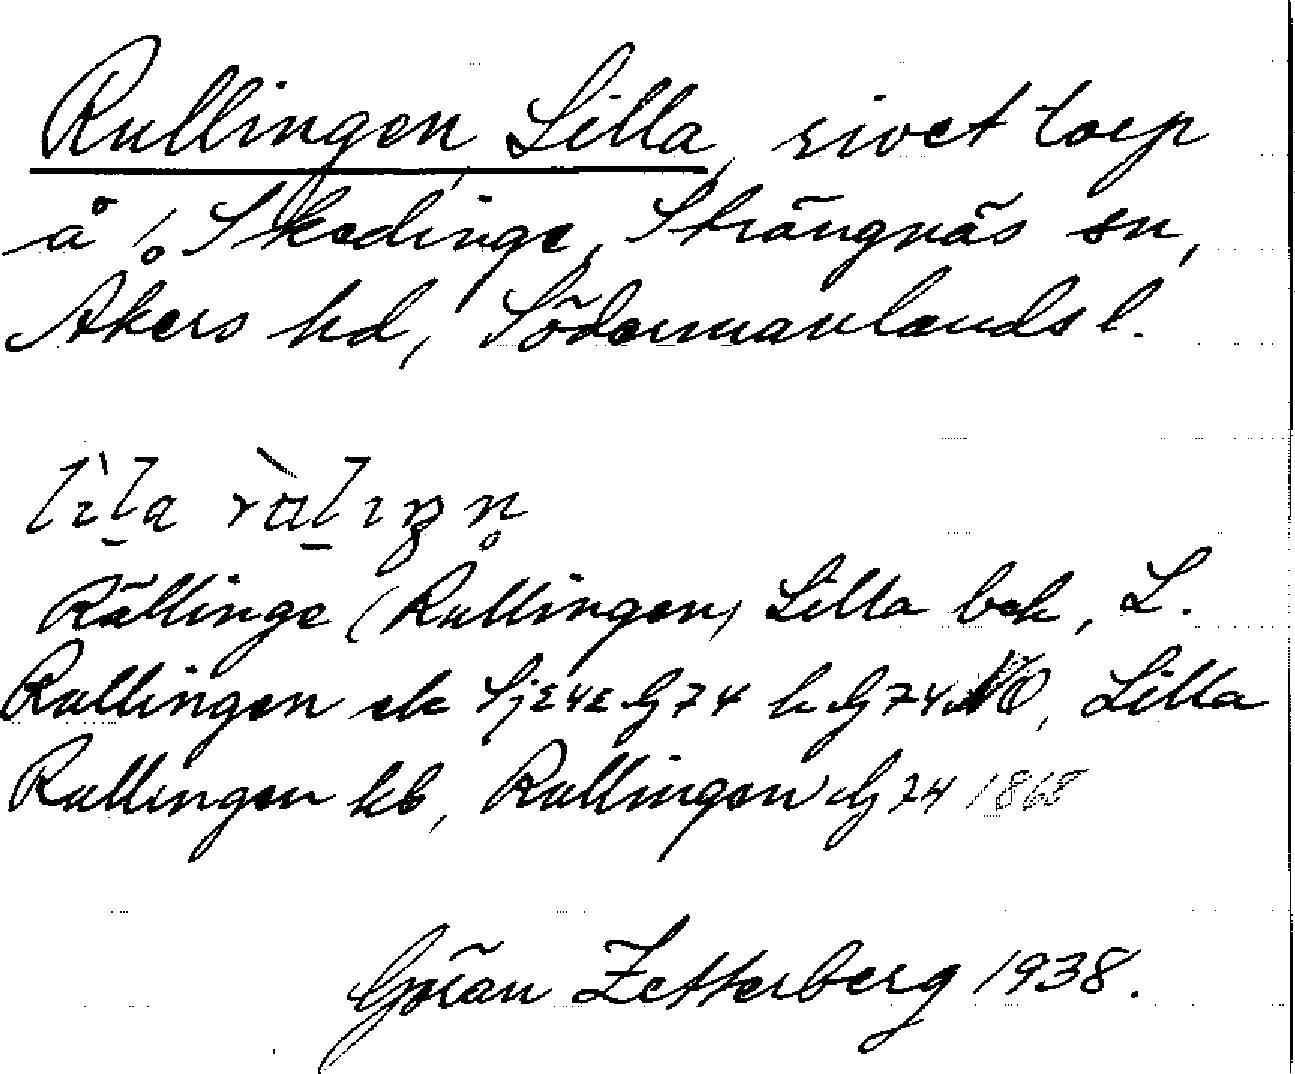 Rullingen, Lilla, rivet torp
å 1:0 Skedinge, Strängnäs sn,
Åkers hd, Södermanlands l.
Rällinge (Rullingen) Lilla bek, L.
Rullingen ek G 74 h G 74, Lilla
Rullingen kb, Rullingen G 74 1868
Göran Zetterberg 1938.